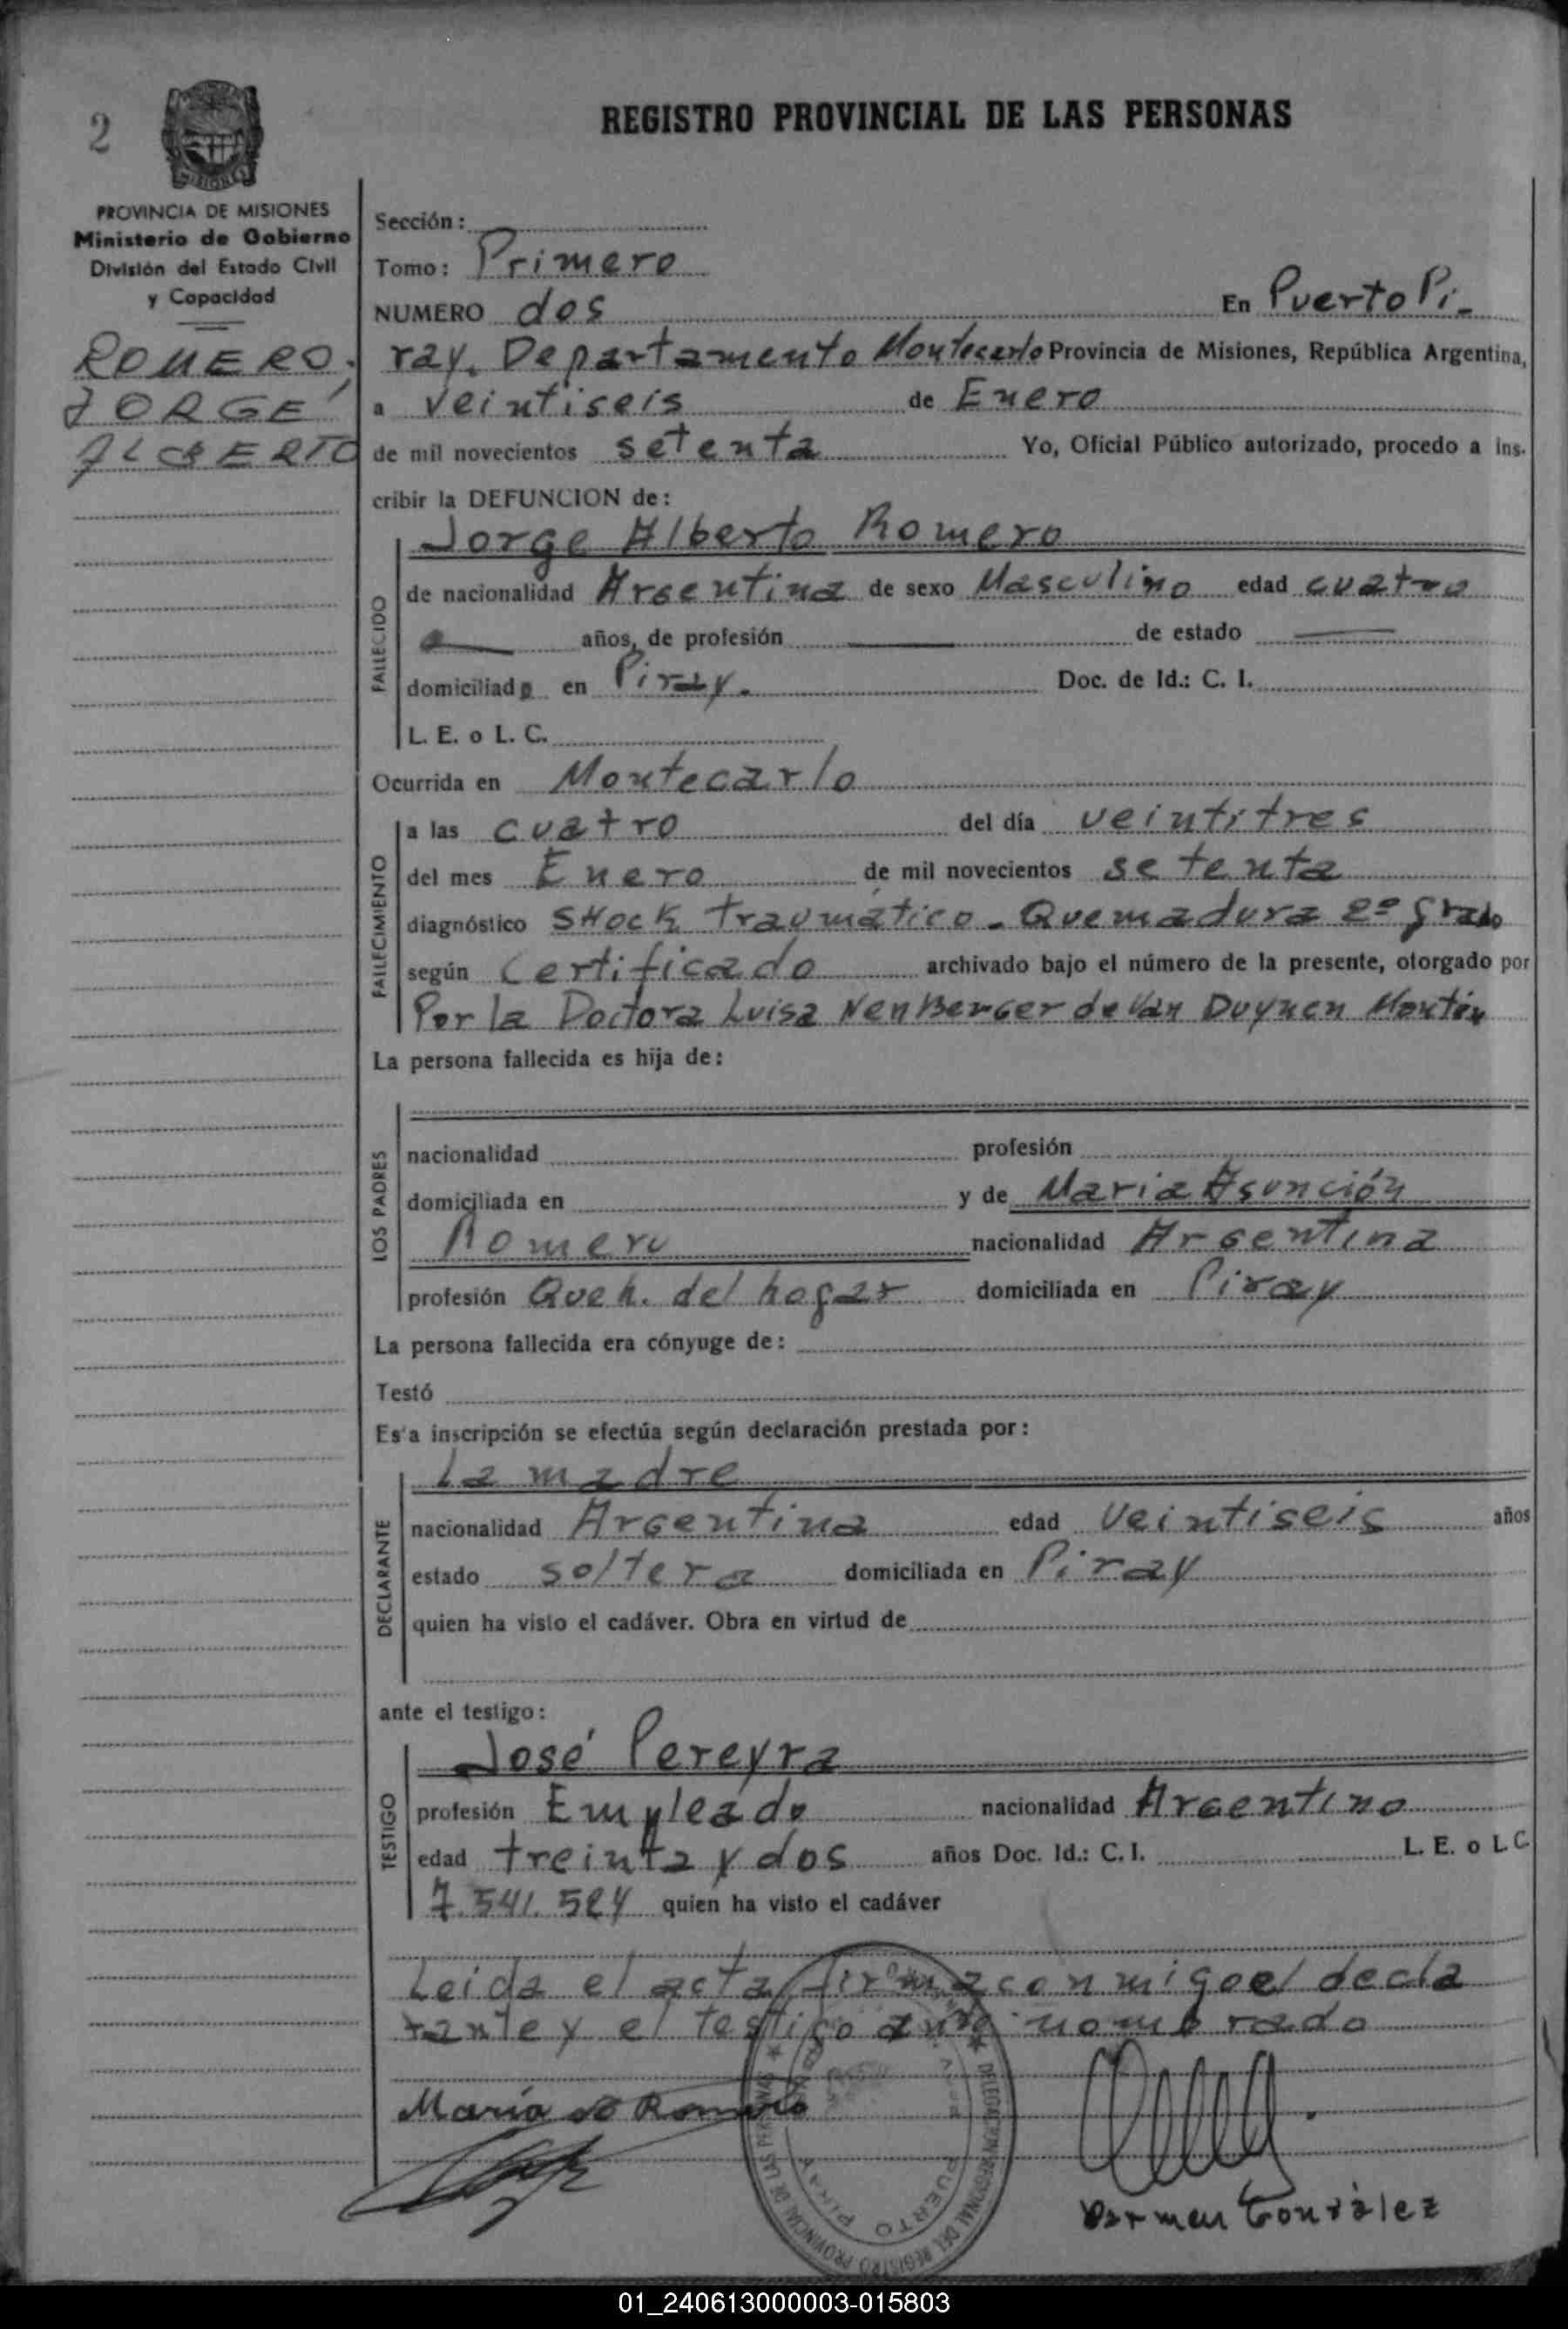 2
MISIONES
PROVINCIA DE MISIONES
Ministerio de Gobierno
División del Estado Civil
y Capacidad
ROMERO,
JORGE
ALBERTO
REGISTRO PROVINCIAL DE LAS PERSONAS
Sección:
Tomo: Primero
NUMERO dos En Puerto Pi-
ray. Departamento Montecarlo Provincia de Misiones, República Argentina,
a veintiseis de Enero
de mil novecientos setenta Yo, Oficial Público autorizado, procedo a ins-
cribir la DEFUNCION de:
Jorge Alberto Romero
FALLECIDO
de nacionalidad Argentina de sexo Masculino edad cuatro
años, de profesión de estado
domiciliado en Piray. Doc. de Id.: C. I.
L. E. o L. C.
Ocurrida en Montecarlo
FALLECIMIENTO
a las cuatro del día veintitres
del mes Enero de mil novecientos setenta
diagnóstico SHock traumático - Quemadura 2º grado
según Certificado archivado bajo el número de la presente, otorgado por
Por la Doctora Luisa NenBerger de Van Duynen
La persona fallecida es hija de:
LOS PADRES
nacionalidad profesión
domiciliada en y de Maria Asunción
Romero nacionalidad Argentina
profesión Queh. del hogar domiciliada en Piray
La persona fallecida era cónyuge de:
Testó
Esta inscripción se efectúa según declaración prestada por:
La madre
DECLARANTE
nacionalidad Argentina edad veintiseis años
estado soltera domiciliada en Piray
quien ha visto el cadáver. Obra en virtud de
ante el testigo:
José Pereyra
TESTIGO
profesión Empleado nacionalidad Argentino
edad treinta y dos años Doc. Id.: C. I. L. E. o L.C.
7.541.524 quien ha visto el cadáver
Leida el acta firma conmigo el decla
rante y el testigo ante nombrado
María Romero
DELEGACION REGIONAL DEL REGISTRO PROVINCIAL DE LAS PERSONAS
PUERTO PIRAY
González
01_240613000003-015803